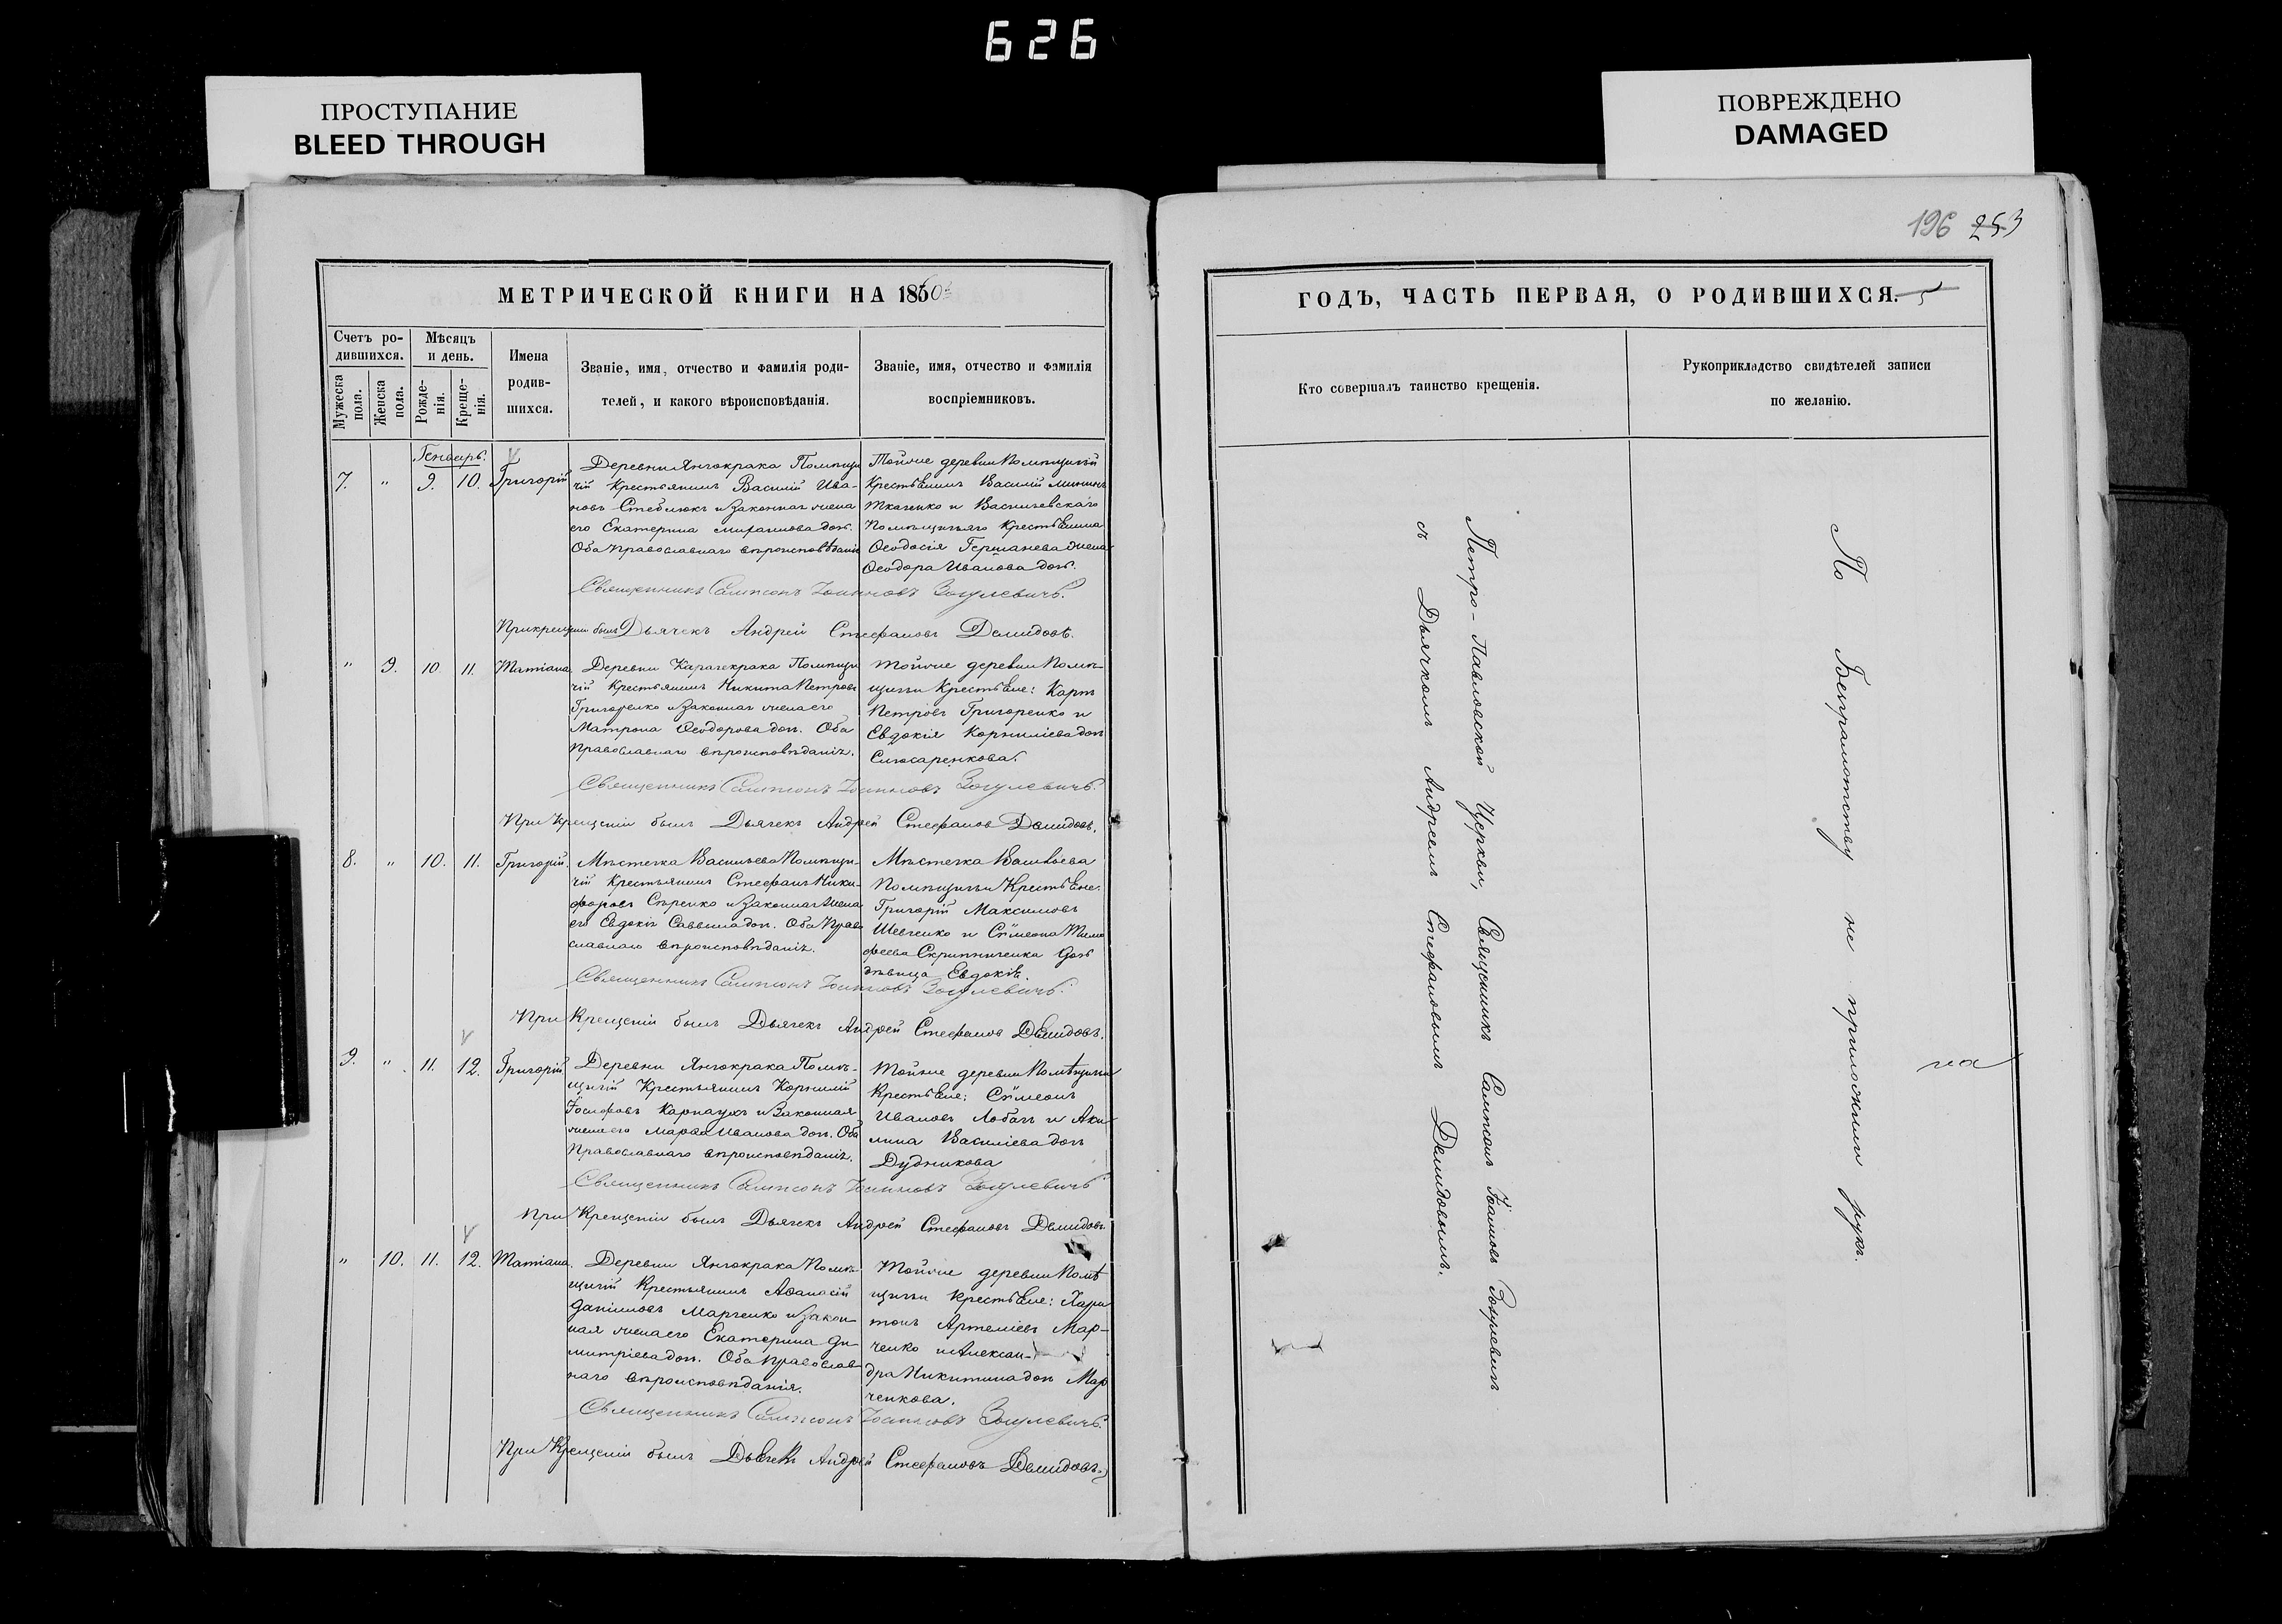 626
ПРОСТУПАНИЕ
BLEED THROUGH
ПОВРЕЖДЕНО
DAMAGED
196 253
МЕТРИЧЕСКОЙ КНИГИ НА 1860й
Счетъ ро-
дившихся.
Мужеска
пола.
Женска
пола.
Мѣсяцъ
и день.
Рожде-
нія.
Креще-
нія.
Имена
родив-
шихся.
Званіе, имя, отчество и фамилія роди-
телей, и какого вѣроисповѣданія.
Званіе, имя, отчество и фамилія
воспріемниковъ.
Генварь.
7. " 9. 10. Григорій
Деревни Янчокрака Помѣщи
чій Крестьянинъ Василій Ива-
новъ Стеблюкъ и Законная жена
его Екатерина дочь.
Оба православнаго вѣроисповѣданія
Тойже деревни Помѣщичій
Крестьянинъ Василій Мининъ
Ткаченко и Васильевскаго
Помѣщичьяго Крестьянина
Ѳеодосія Германева жена
Ѳеодора Иванова дочь.
Священникъ Сампсонъ Іоанновъ Зогулевичъ.
При крещеніи былъ Дьячекъ Андрей Стефановъ Демидовъ.
" 9. 10 11. Татіана
Деревни Карачекрака Помѣщи
чій Крестьянинъ Никита Петровъ
Григоренко и Законная жена его
Матрона Ѳеодорова доч. Оба
Православнаго вѣроисповѣданія.
Тойже деревни Помѣ-
щичьи Крестьяне: Карпъ
Петровъ Григоренко и
Евдокія Корниліева доч
Слюсаренкова.
Священникъ Сампсонъ Іоанновъ Зогулевичъ.
При Крещеніи былъ Дьячекъ Андрей Стефанов Демидовъ.
8. " 10. 11. Григорій.
Мѣстечка Васильева Помѣщи-
чій Крестьянинъ Стефанъ Ники-
форовъ Сѣренко и Законная жена
его Евдокія Саввина доч. Оба Право
славнаго вѣроисповѣданія.
Мѣстечка Васильева
Помѣщичьи Крестьяне:
Григорій Максимовъ
Шевченко и Сѵмеона Тимо
феева Скрипниченка дочь
дѣвица Евдокія.
Священникъ Сампсонъ Іоанновъ Зогулевичъ.
При Крещеніи былъ Дьячекъ Андрей Стефанов Демидовъ.
9. " 11. 12. Григорій
Деревни Янчокрака Помѣ-
щичій Крестьянинъ Корнилій
Іосифовъ Карнаухъ и Законная
жена его Марѳа Иванова доч. Оба
Православнаго вѣроисповѣданія.
Тойже деревни Помѣщичьи
Крестьяне; Сѵмеонъ
Ивановъ Лобачъ и Аки
лина Василіева доч
Дудникова
Священникъ Сампсонъ Іоанновъ Зогулевичъ
При Крещеніи былъ Дьячекъ Андрей Стефановъ Демидовъ
" 10. 11. 12. Татіана.
Деревни Янчокрака Помѣ-
щичій Крестьянинъ Аѳанасій
Даніиловъ Марченко и Закон-
ная жена его Екатерина Ди-
митріева доч. Оба Православ-
наго вѣроисповѣданія.
Тойже деревни Помѣ
щичьи Крестьяне: Хари
тонъ Артеміевъ Мар-
ченко и Алексан-
дра Никитина доч Мар
ченкова.
Священникъ Сампсонъ Іоанновъ Зогулевичъ.
При Крещеніи былъ Дьячекъ Андрей Стефановъ Демидовъ.
ГОДЪ, ЧАСТЬ ПЕРВАЯ, О РОДИВШИХСЯ. 5
Кто совершалъ таинство крещенія.
Рукоприкладство свидѣтелей записи
по желанію.
Петро-Павловской Церкви, Священникъ Сампсонъ Іоанновъ Зогулевичъ
съ Дьячкомъ Андреемъ Стефановымъ Демидовымъ.
По Безграмотству не приложили рукъ.
на